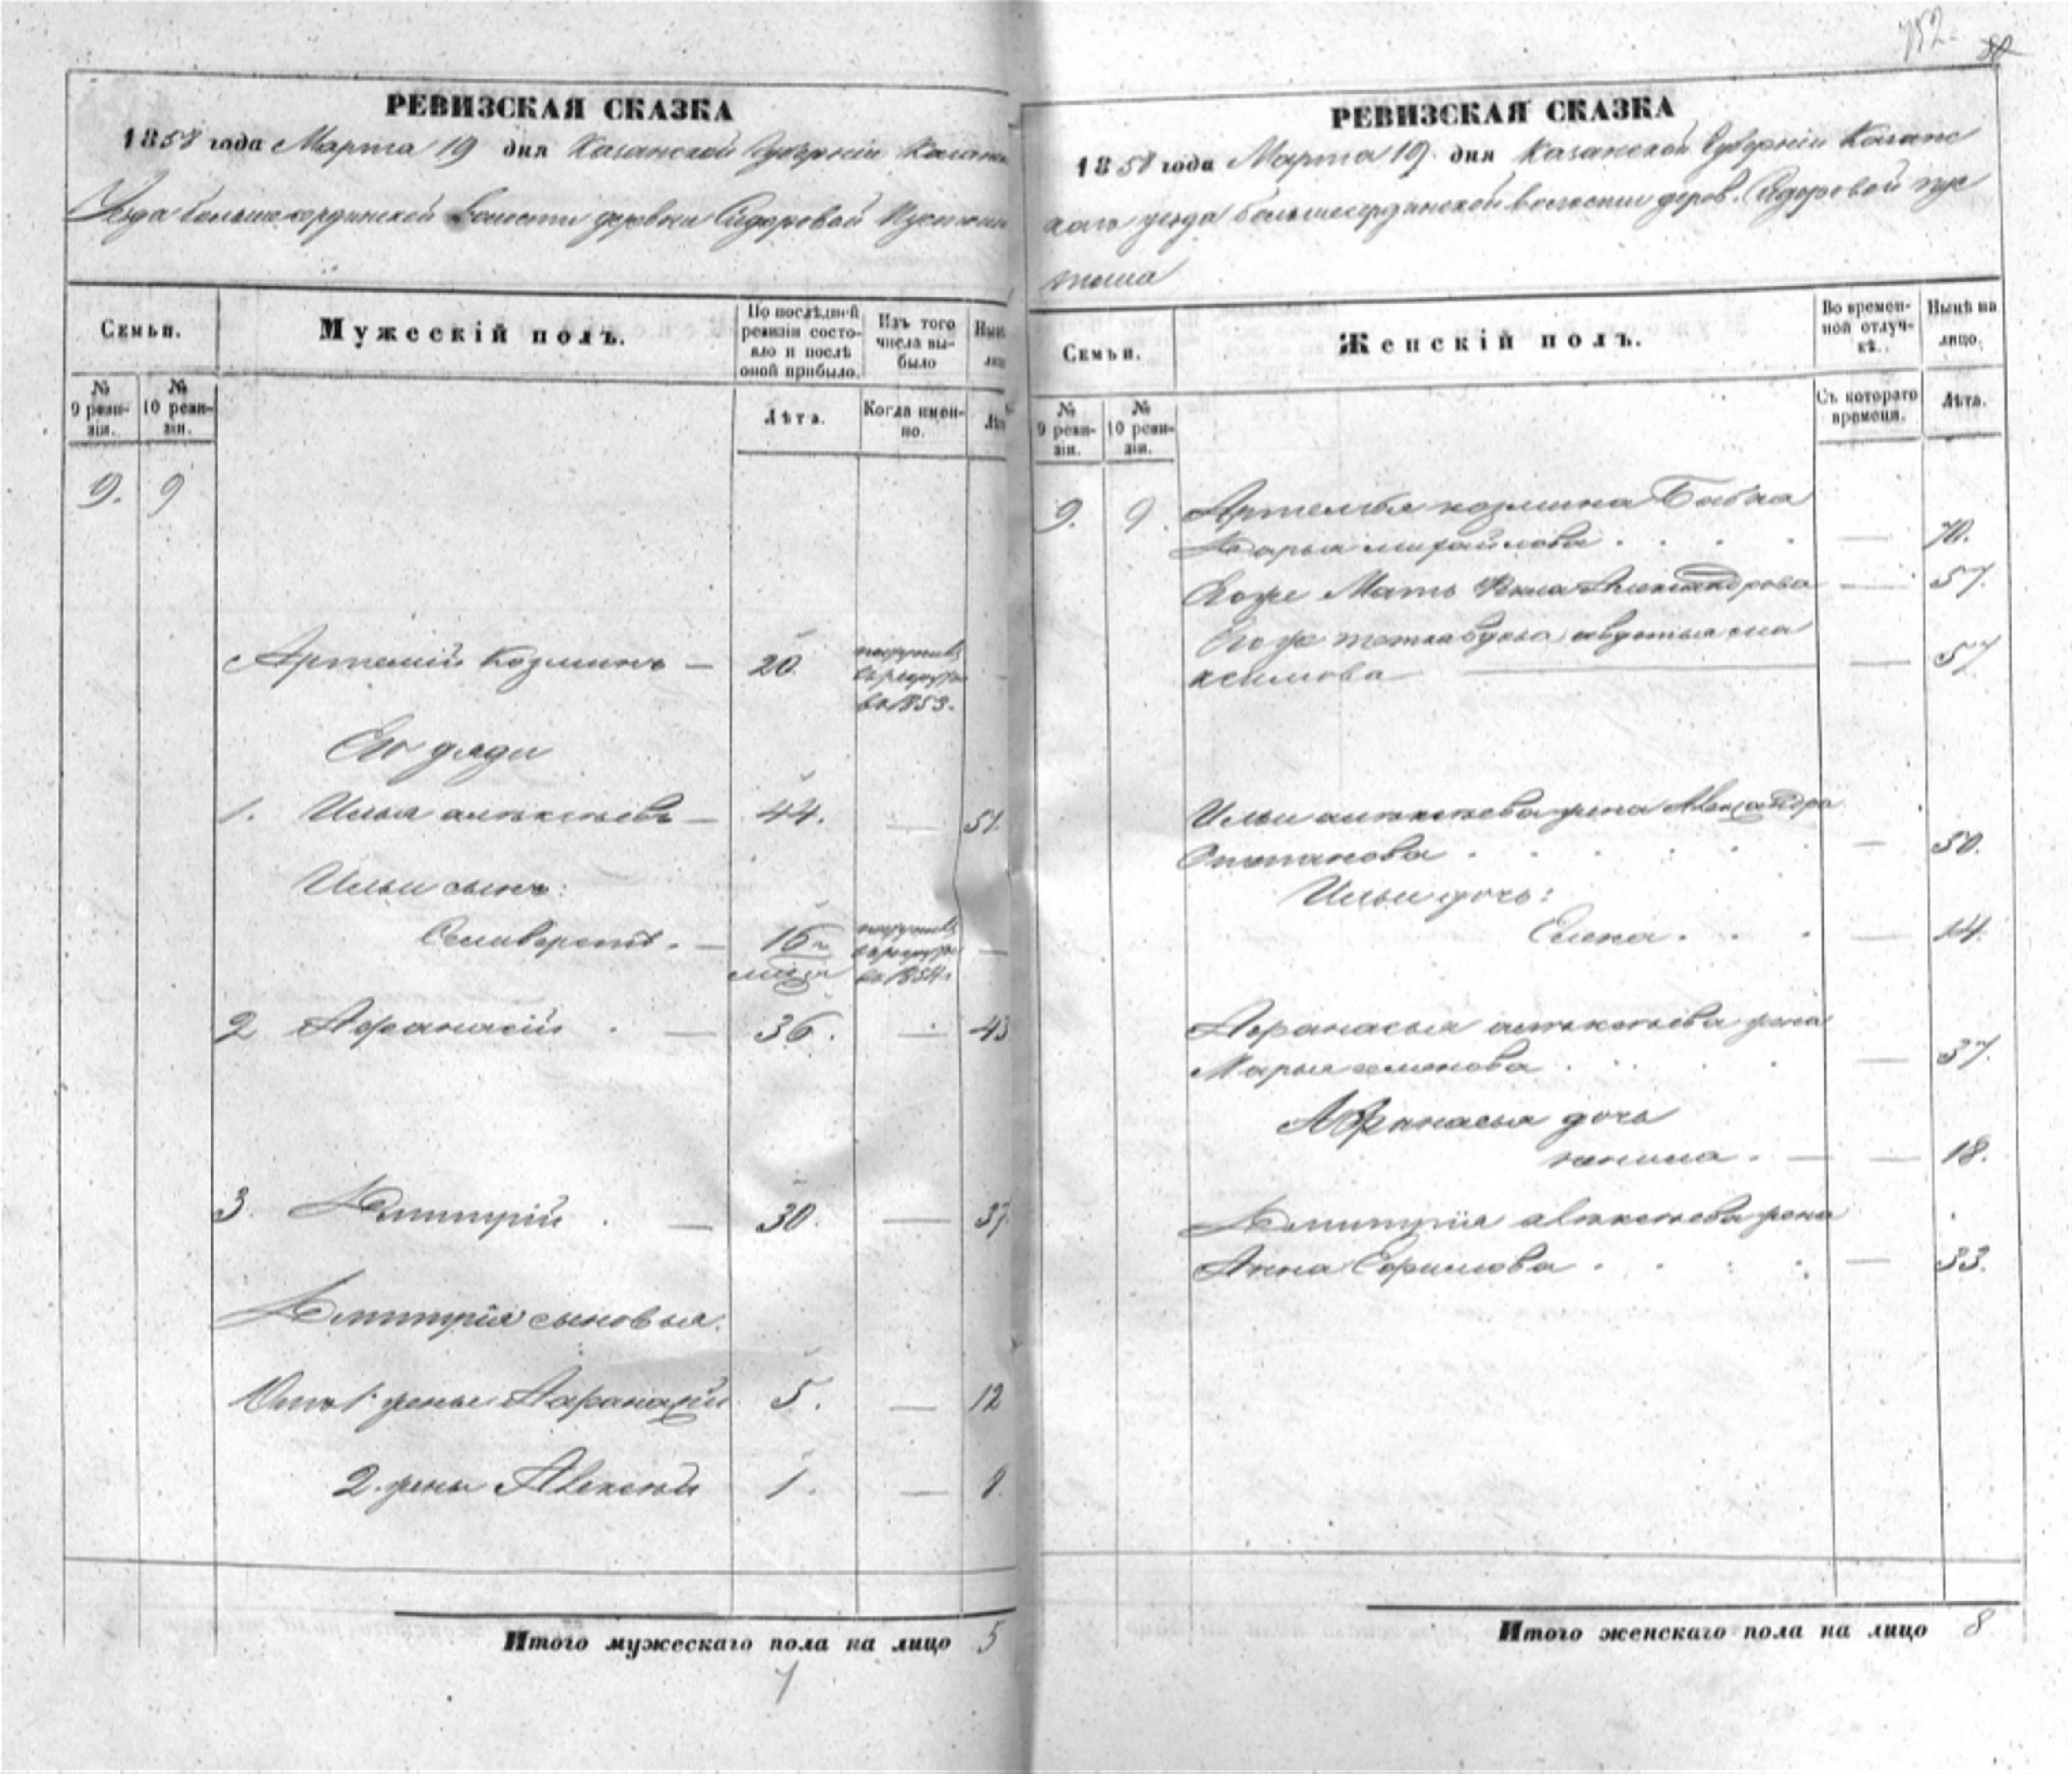 752.
РЕВИЗСКАЯ СКАЗКА
1858 года Марта 19 дня Казанской Губерніи Казанс
Уезда большесердинской Волости деревни Сидоровой Пустоши
Семьи.
Мужескій полъ.
По послѣдней ревизіи состояло и послѣ оной прибыло.
Изъ того числа выбыло
Нынѣ
лицо
№ 9 ревизіи.
№ 10 ревизіи.
Лѣта.
Когда именно.
Лѣта
9. 9
Артемій Козминъ — 20. поступилъ въ рекруты въ 1853.
Его дяди
1. Илья алексѣевъ — 44. — 51.
Ильи сынъ:
Селиверстъ. — 16 поступилъ въ рекруты въ 1854. —
2 Афанасій . — 36. — 43
3. Дмитрій . — 30. — 37.
Дмитрія сыновья.
Отъ 1 жены Афанасій 5. — 12
2. жены Алексѣй 1. — 8.
Итого мужескаго пола на лицо 5
7
РЕВИЗСКАЯ СКАЗКА
1858 года Марта 19 дня Казанской Губерніи Казанс
каго уезда большесердинской волости дерев. Сидоровой пус
тоши
Семьи.
Женскій полъ.
Во временной отлучкѣ.
Нынѣ на лицо.
№ 9 ревизіи.
№ 10 ревизіи.
Съ котораго времени.
Лѣта.
9. 9.
Артемья козмина Бабка
Дарья михайлова . . . . — 70.
Его же Мать Фекла Александрова — 57.
Его же тетка вдова авдотья ма
ксимова — 57
Ильи алексѣева жена Александра
Степанова . . . . . — 50.
Ильи дочь:
Елена . . . — 14.
Афанасья алексѣева жена
Марья семенова . . . . — 37.
Афанасья дочь
18.
Дмитрія алексѣева жена
Анна Ефимова . . . . — 33.
Итого женскаго пола на лицо 8